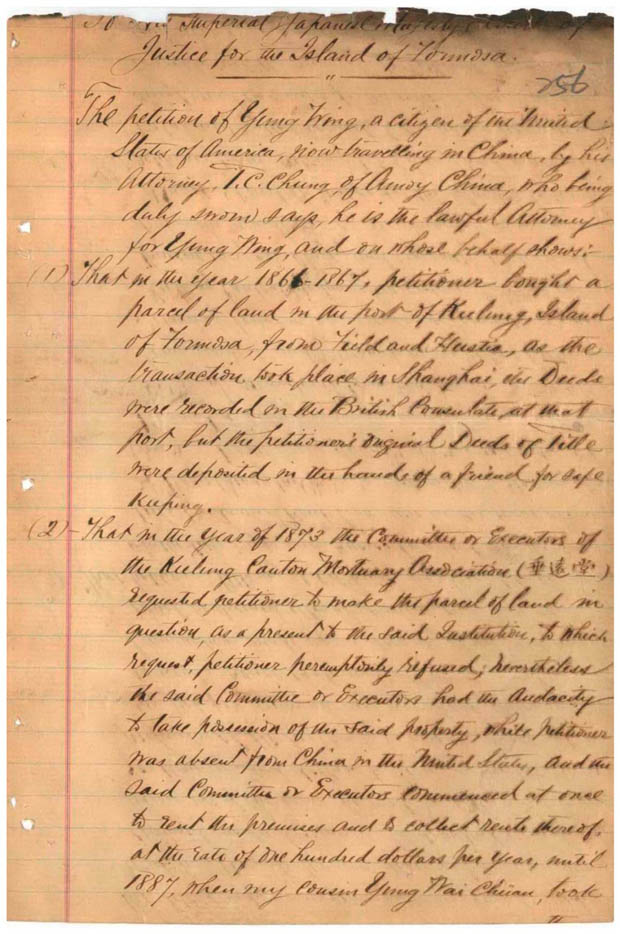 To Imperial Japanese Majesty's Court of
Justice for the Island of Formosa.
256
The petition of Yung Wing, a citizen of the United
States of America, now travelling in China, by his
Attorney, T. C. Chung, of Amoy China, who being
duly sworn says, he is the lawful Attorney
for Yung Wing, and on whose behalf shows:-
(1) That in the year 1866-1867, petitioner bought a
parcel of land in the port of Keelung, Island
of Formosa, from Field and Hastis, as the
transaction took place in Shanghai, the Deeds
were recorded in the British Consulate, at that
port, but the petitioner's original Deeds of Title
were deposited in the hands of a friend for safe
keeping.
(2) - That in the year of 1873 the Committee or Executors of
the Keelung Canton Mortuary Association (垂遠堂)
requested petitioner to make the parcel of land in
question, as a present to the said Institution, to which
request, petitioner peremptorily refused; nevertheless
the said Committee or Executors had the Audacity
to take possession of the said property, while petitioner
was absent from China in the United States, and the
said Committee or Executors commenced at once
to rent the premises and to collect rents thereof,
at the rate of one hundred dollars per year, until
1887, when my cousin Yung Wai Chuan, took